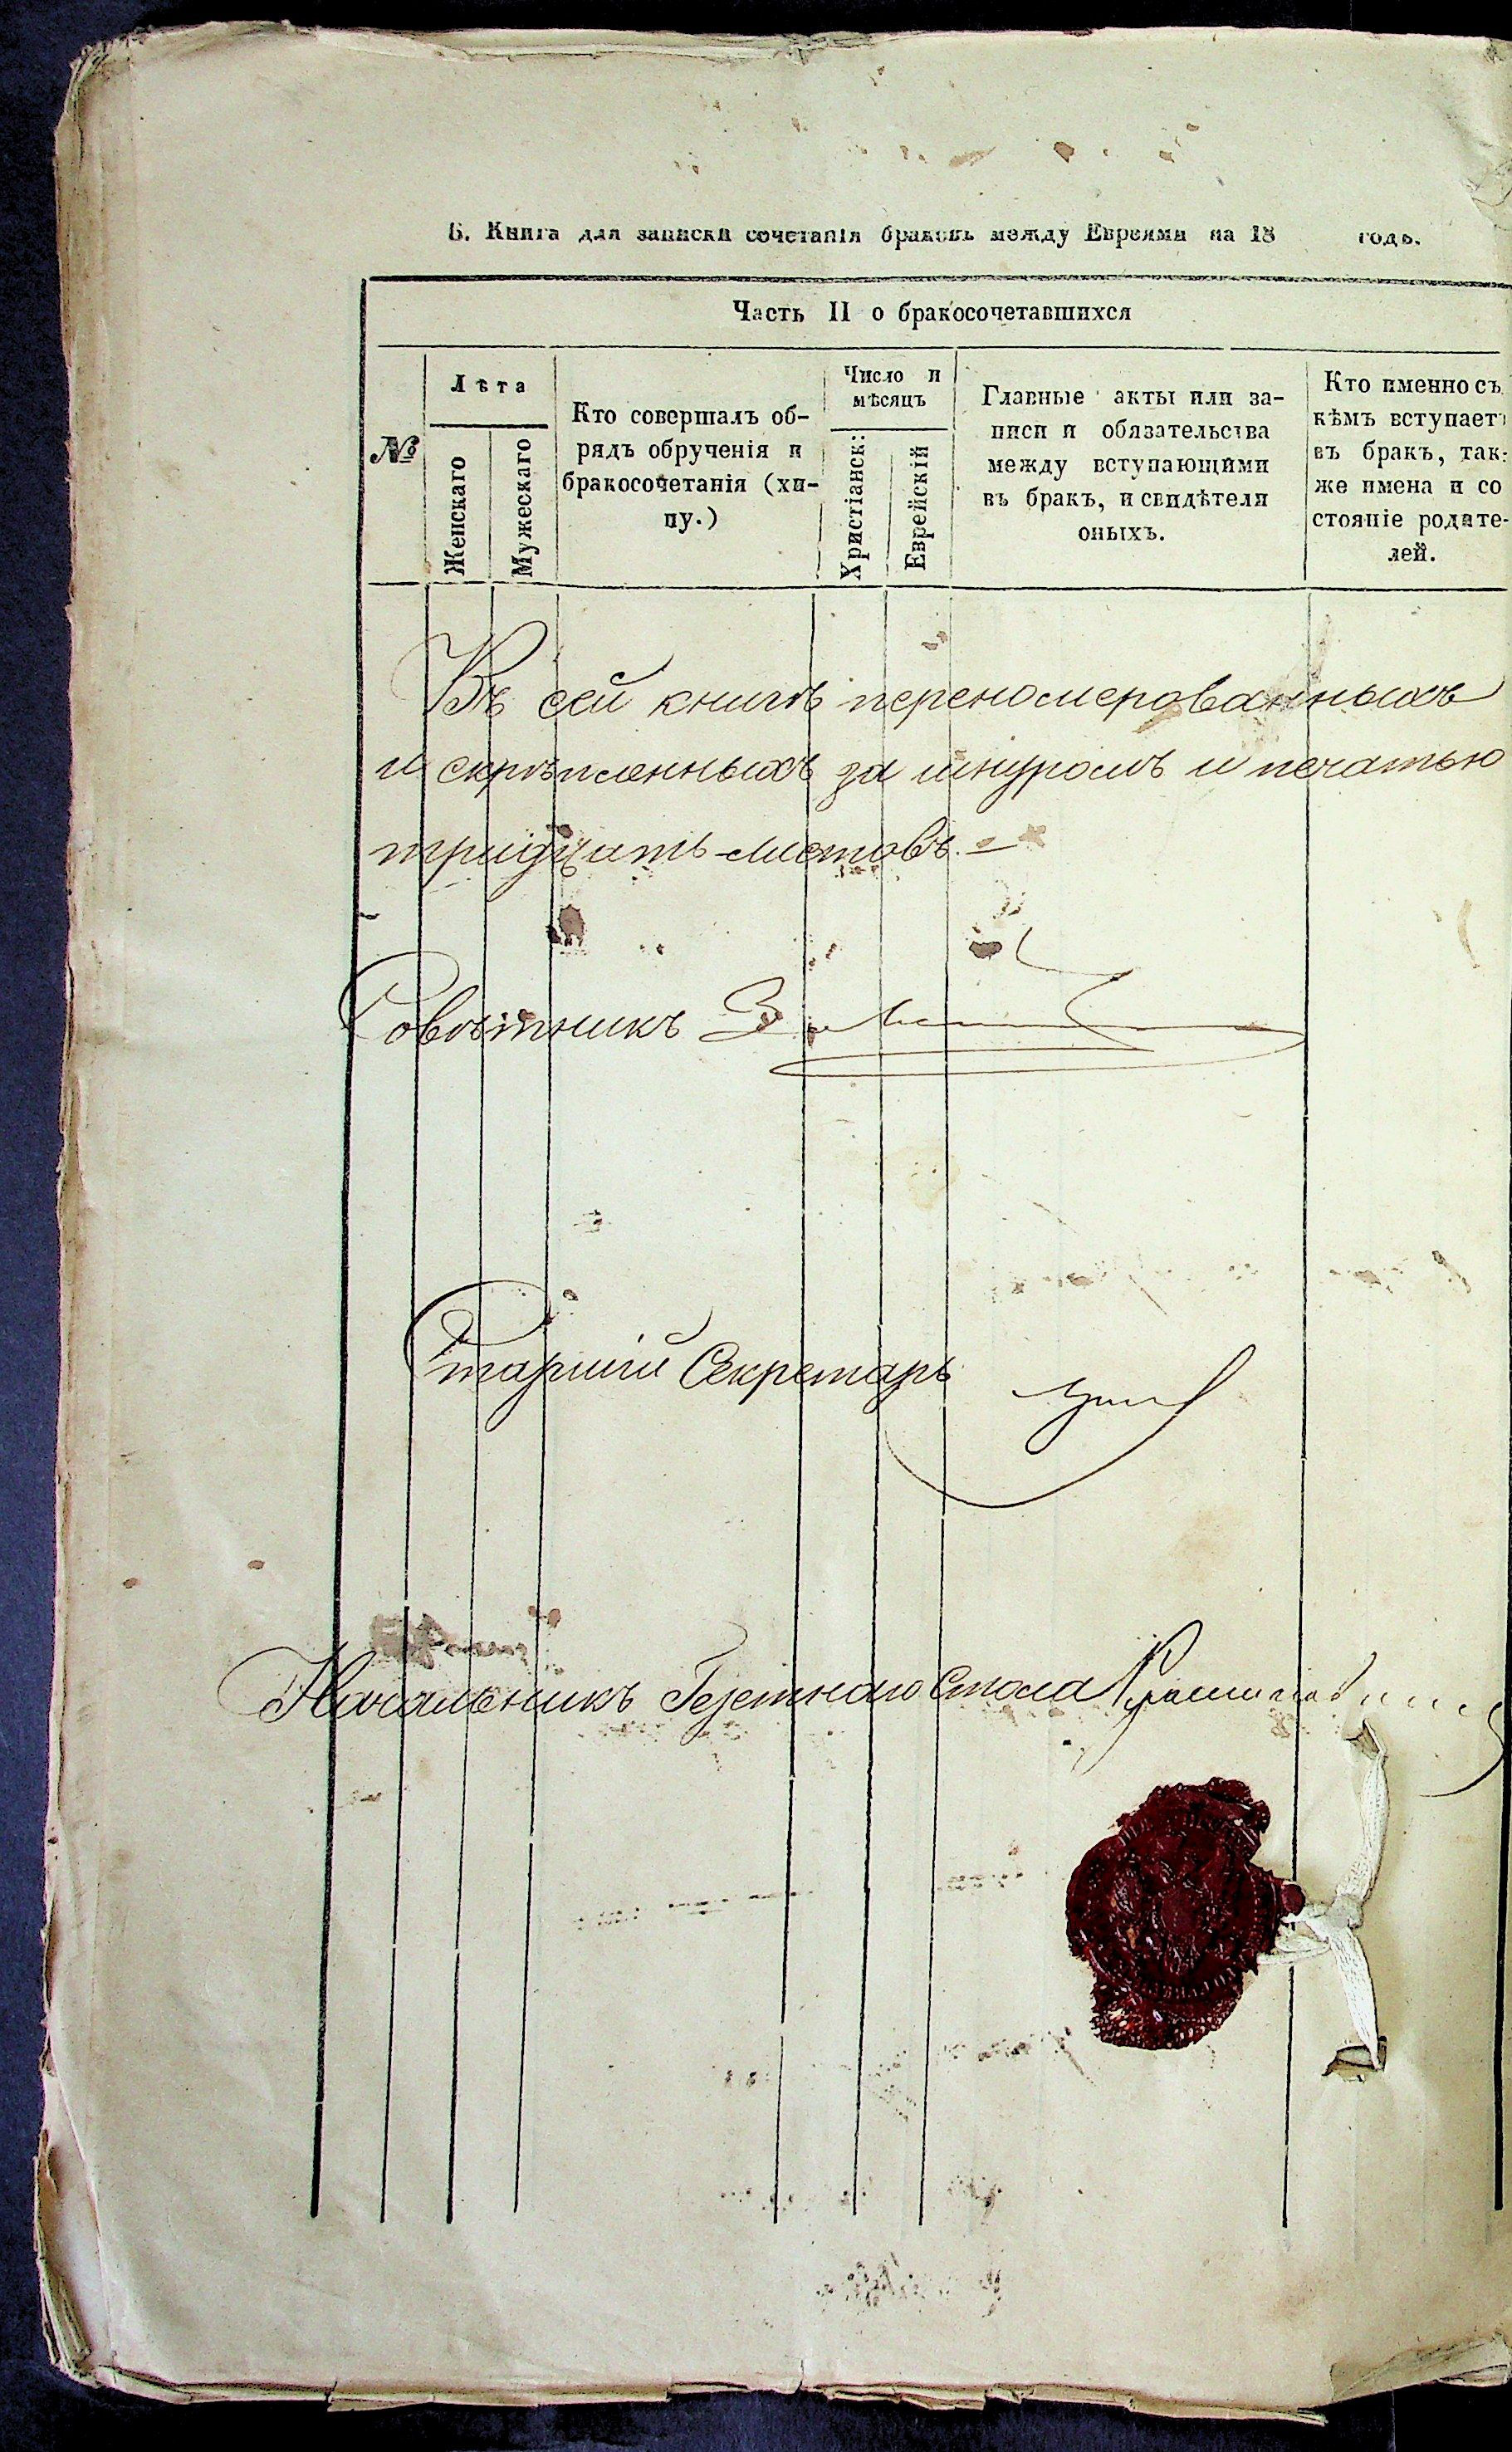 Б. Книга для записки сочетанія браковъ между Евреями на 18 годъ.
Часть II о бракосочетавшихся
№
Лѣта
Женскаго
Мужескаго
Кто совершалъ об-
рядъ обрученія и
бракосочетанія (хи-
пу.)
Число и
мѣсяцъ
Христіанск:
Еврейскій
Главные акты или за-
писи и обязательства
между вступающими
въ бракъ, и свидѣтели
оныхъ.
Кто именно съ
кѣмъ вступаетъ
въ бракъ, так:
же имена и со
стояніе родите-
лей.
Въ сей книгѣ переномерованныхъ
и скрѣпленныхъ за шнуромъ и печатью
тридцать листовъ.
Совѣтникъ
Старшій Секретарь
Начальникъ Газетнаго Стола